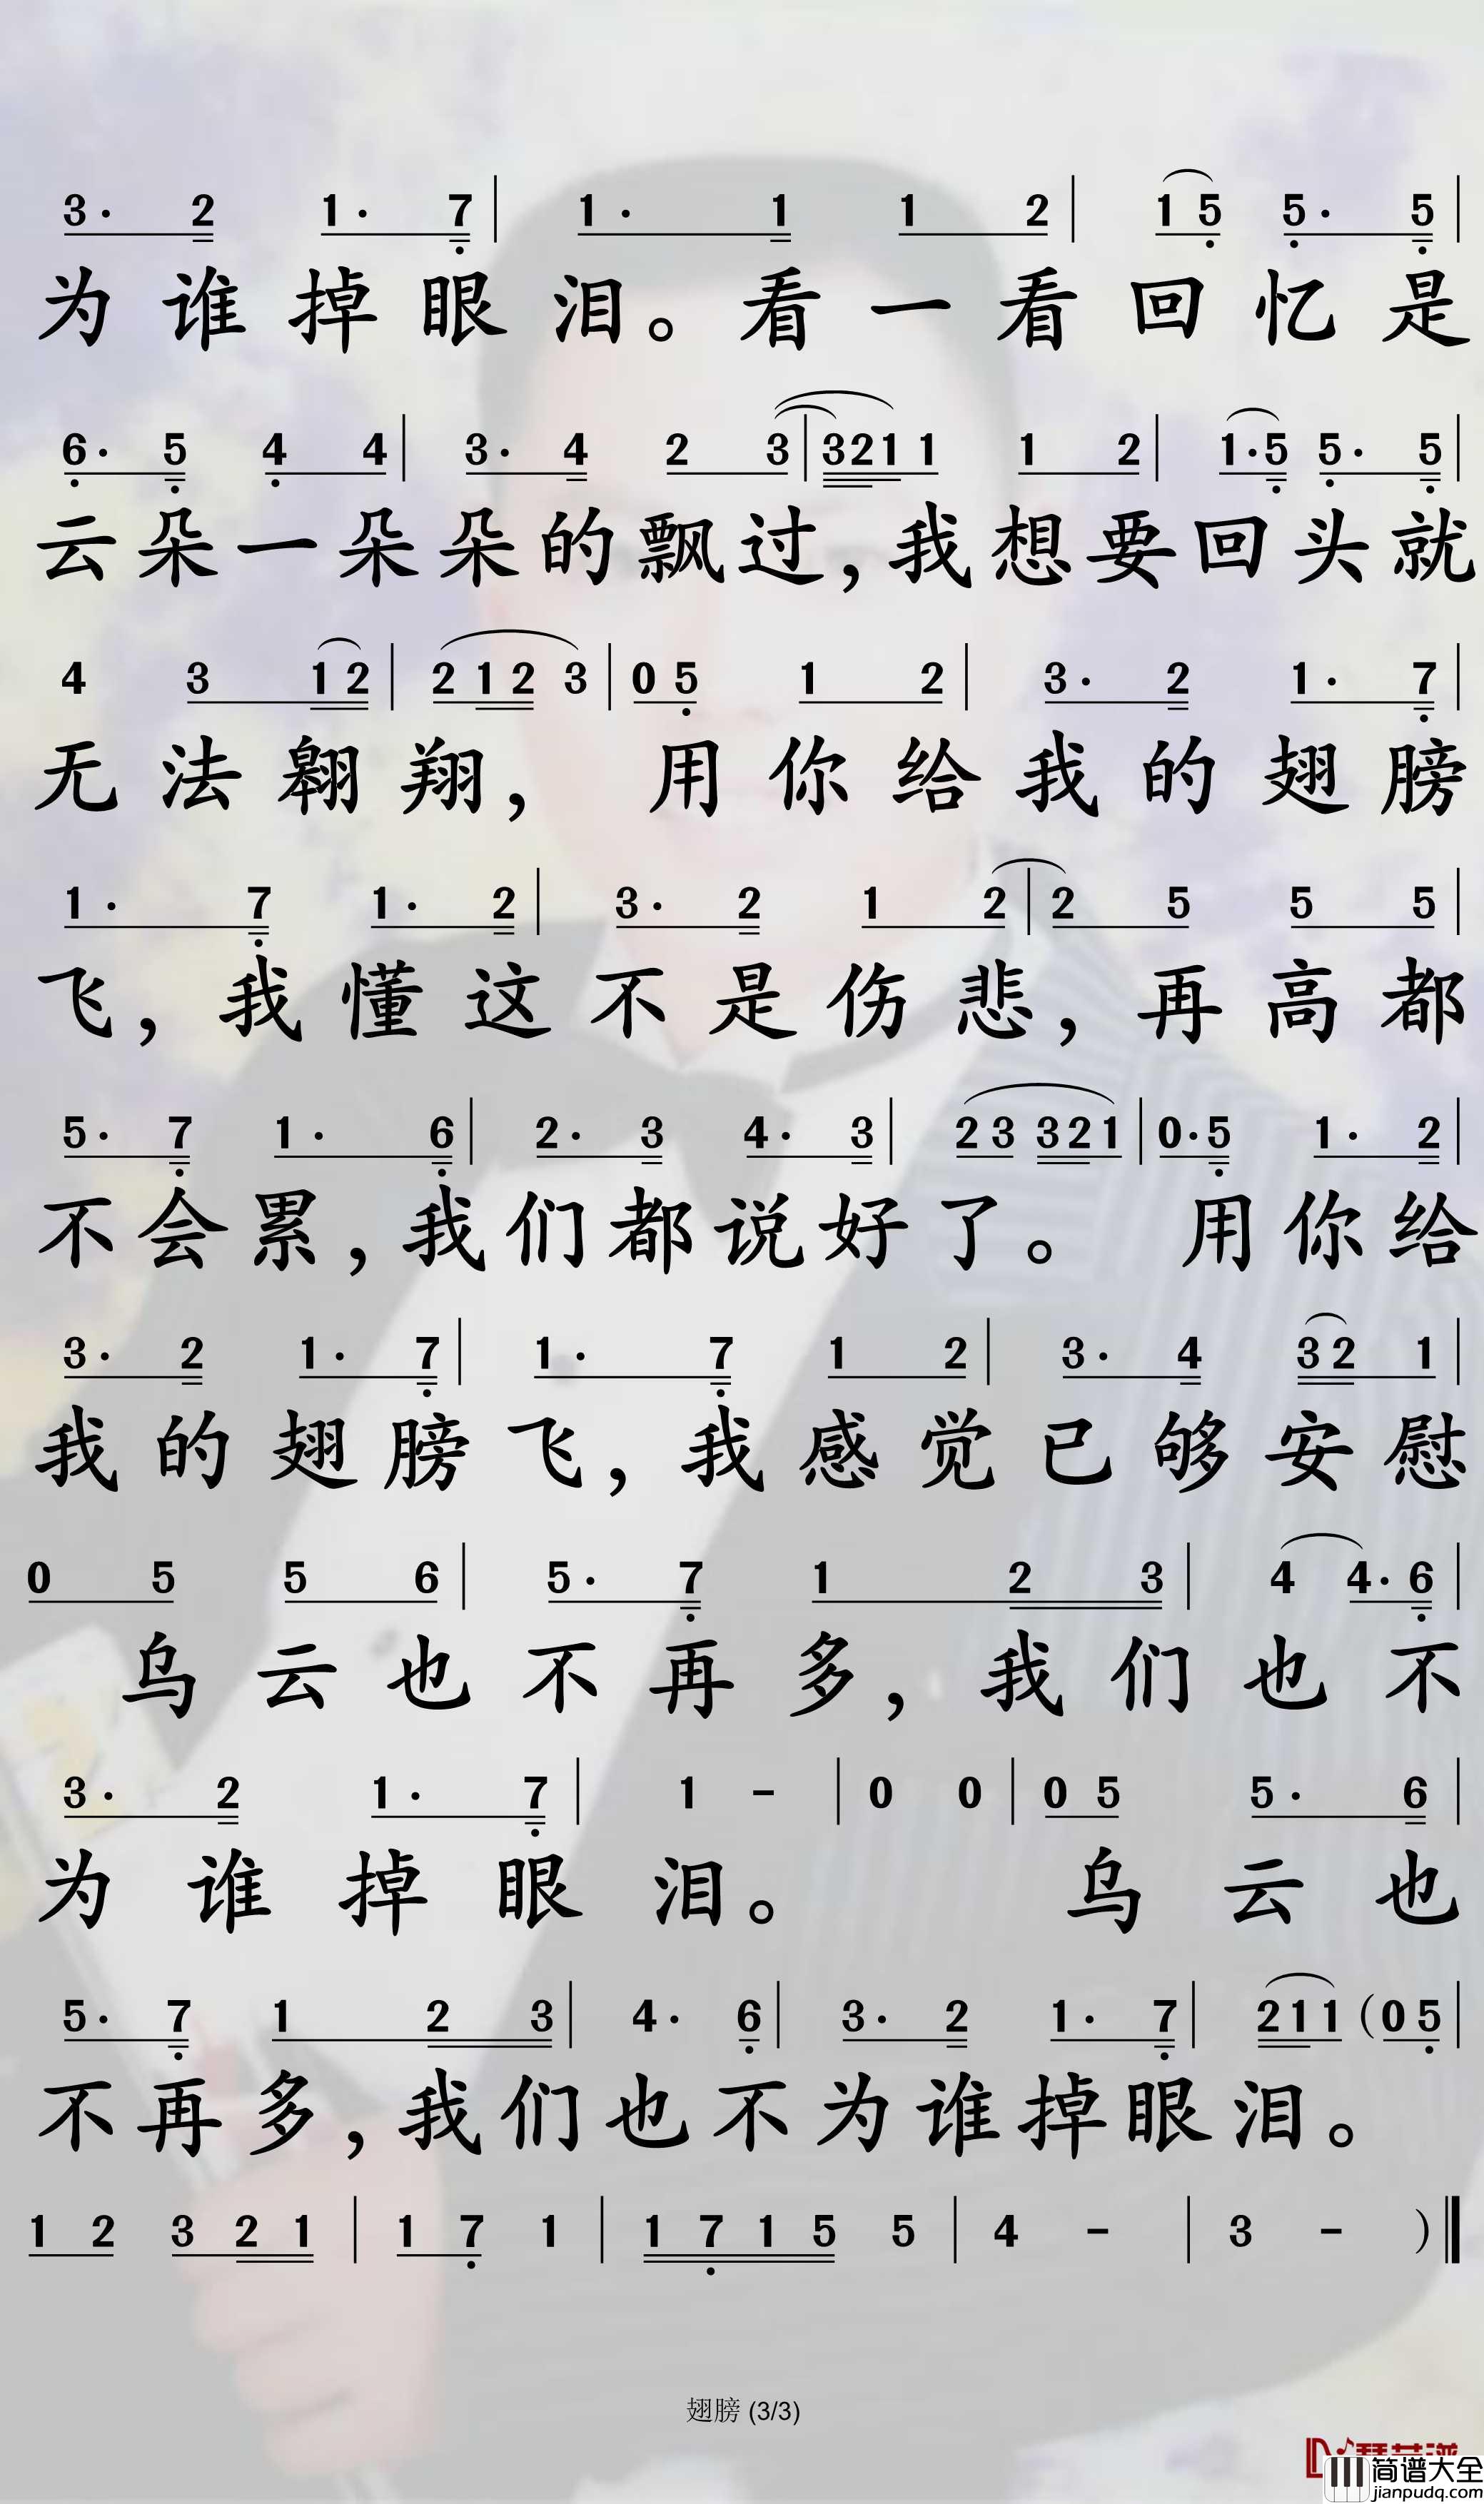 3· 2 1· 7 | 1· 1 1 2 | 1 5 5· 5 |
为谁掉眼泪。看一看回忆是
6· 5 4 4 | 3· 4 2 3 | 3 2 1 1 1 2 | 1· 5 5· 5 |
云朵一朵朵的飘过,我想要回头就
4 3 1 2 | 2 1 2 3 | 0 5 1 2 | 3· 2 1· 7 |
无法翱翔, 用你给我的翅膀
1· 7 1· 2 | 3· 2 1 2 | 2 5 5 5 |
飞,我懂这不是伤悲,再高都
5· 7 1· 6 | 2· 3 4· 3 | 2 3 3 2 1 | 0· 5 1· 2 |
不会累,我们都说好了。 用你给
3· 2 1· 7 | 1· 7 1 2 | 3· 4 3 2 1 |
我的翅膀飞,我感觉已够安慰
0 5 5 6 | 5· 7 1 2 3 | 4 4· 6 |
乌云也不再多,我们也不
3· 2 1· 7 | 1 - | 0 0 | 0 5 5· 6 |
为谁掉眼泪。 乌云也
5· 7 1 2 3 | 4· 6 | 3· 2 1· 7 | 2 1 1 (0 5 |
不再多,我们也不为谁掉眼泪。
1 2 3 2 1 | 1 7 1 | 1 7 1 5 5 | 4 - | 3 - )
翅膀 (3/3)
简谱大全
jianpudq.com